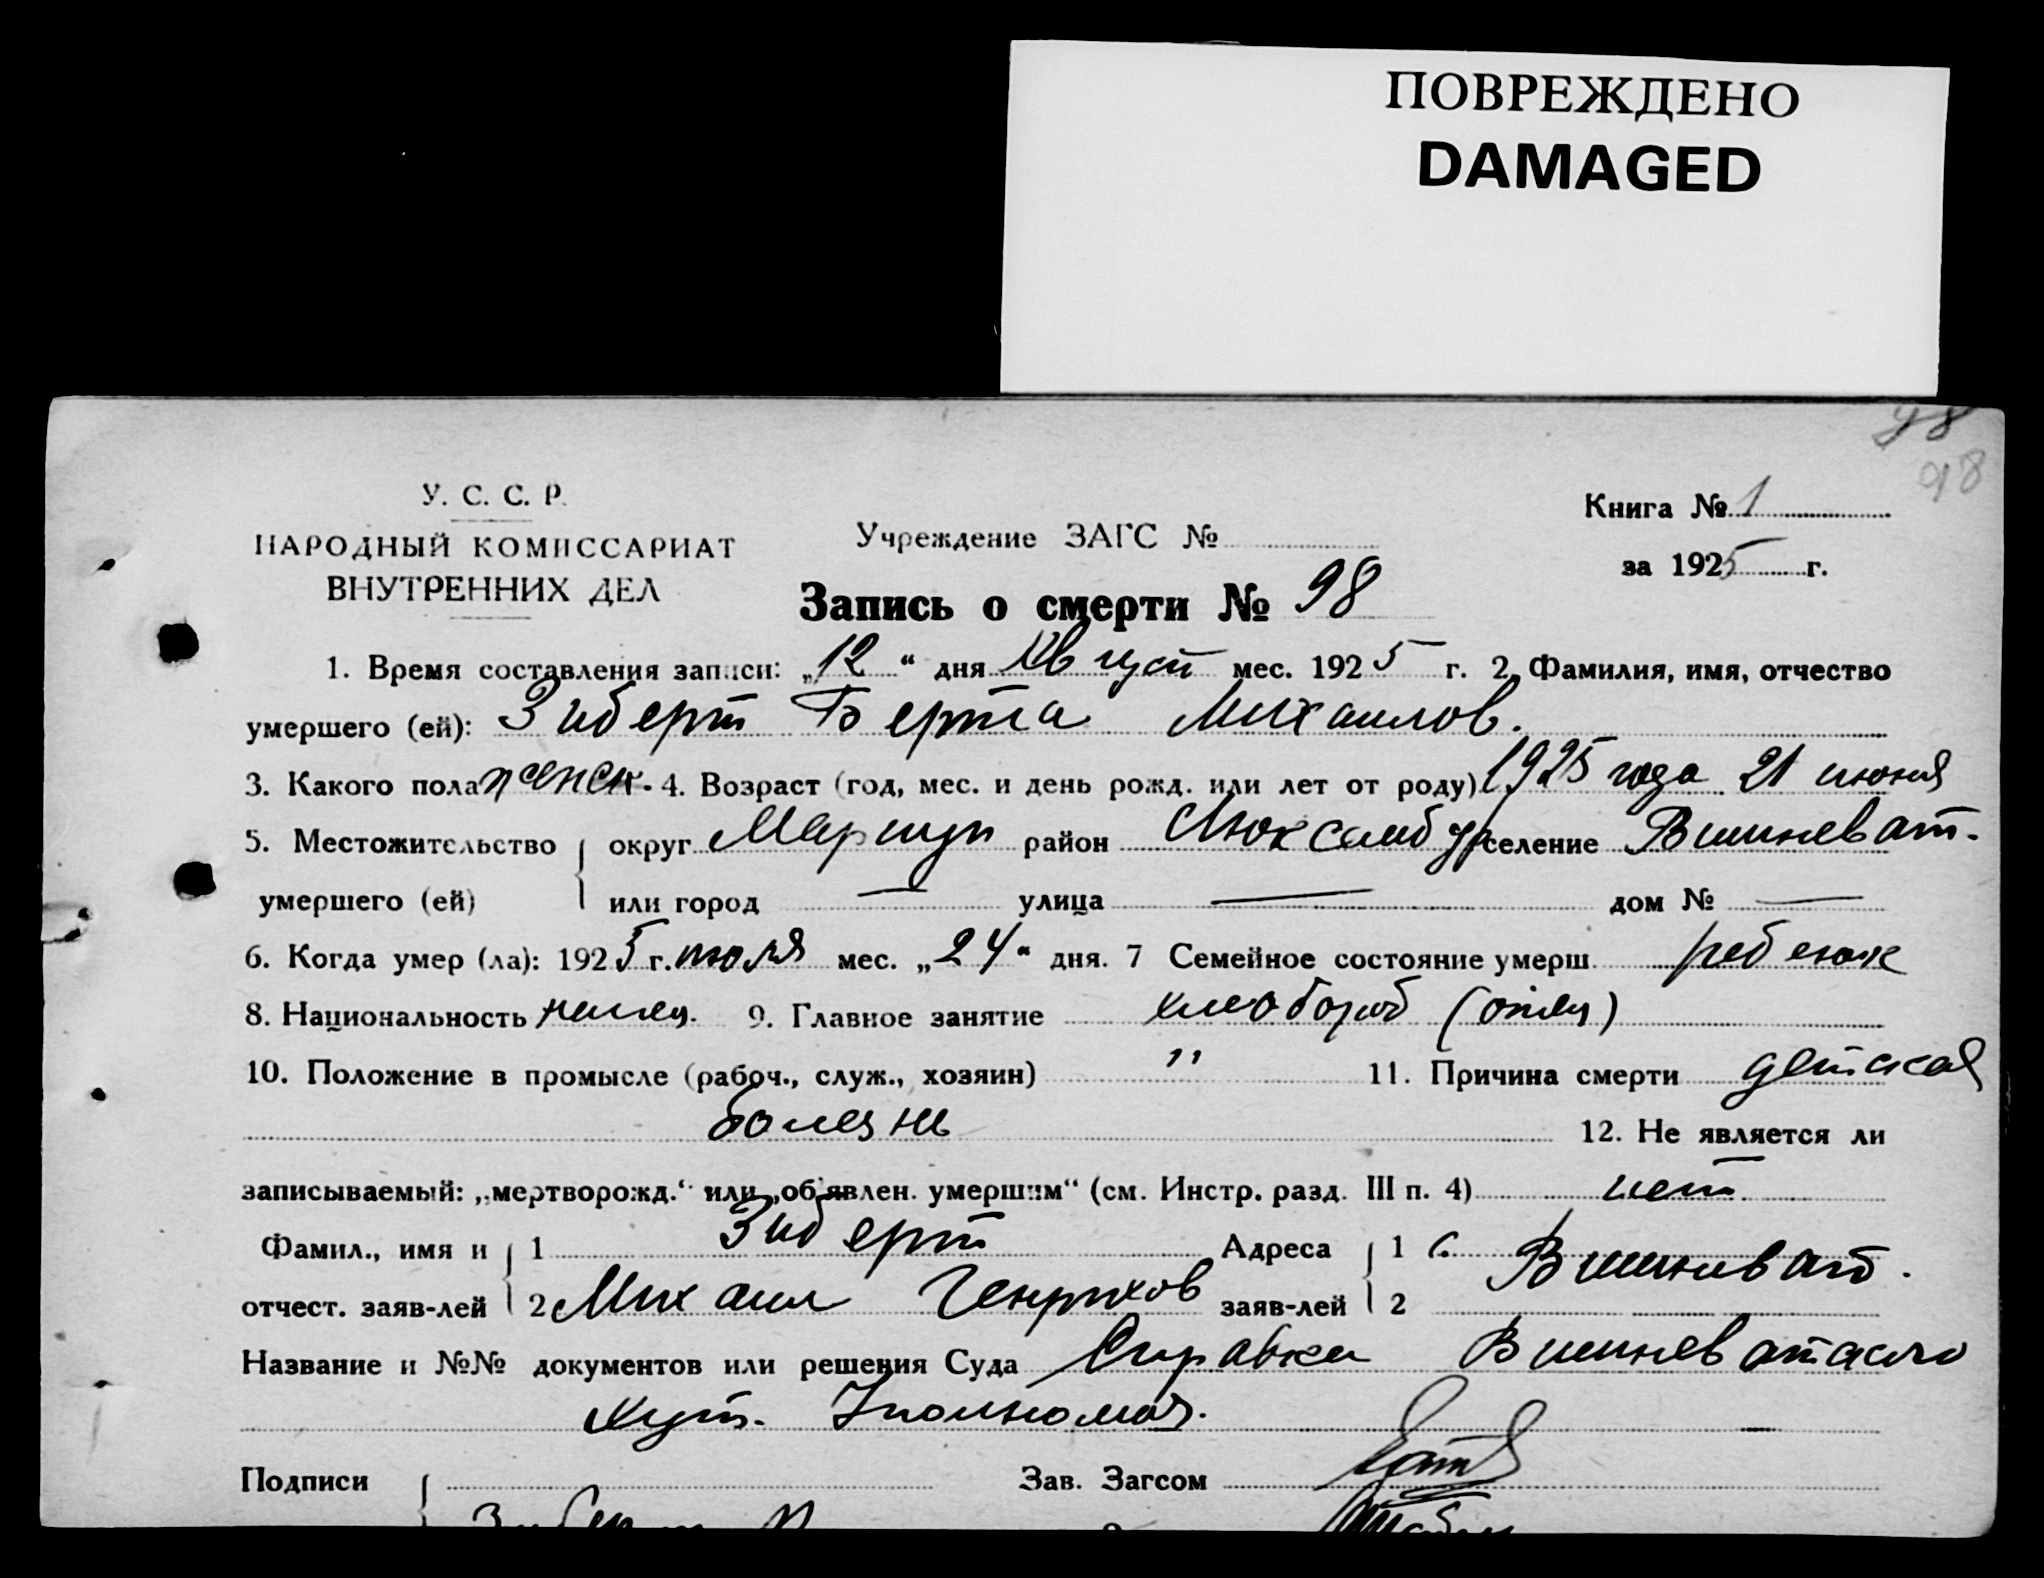 ПОВРЕЖДЕНО
DAMAGED
98
98
У. С. С. Р.
НАРОДНЫЙ КОМИССАРИАТ
ВНУТРЕННИХ ДЕЛ
Учреждение ЗАГС №
Книга № 1
за 1925 г.
Запись о смерти № 98
1. Время составления записи: „12“ дня Август мес. 1925 г. 2. Фамилия, имя, отчество
умершего (ей): Зиберт Берта Михаилов.
3. Какого пола женск. 4. Возраст (год, мес. и день рожд. или лет от роду) 1925 года 21 июня
5. Местожительство умершего (ей) округ Мариуп район Люксембур селение Вишневат.
или город — улица — дом № —
6. Когда умер (ла): 1925 г. июля мес. „24“ дня. 7 Семейное состояние умерш. ребенок
8. Национальность немец. 9. Главное занятие хлебороб (отец)
10. Положение в промысле (рабоч., служ., хозяин) " 11. Причина смерти детская
болезнь 12. Не является ли
записываемый: „мертворожд.“ или „об'явлен. умершим“ (см. Инстр. разд. III п. 4) нет
Фамил., имя и отчест. заяв-лей 1 Зиберт Адреса заяв-лей 1 с. Вишневат.
2 Михаил Генрихов 2
Название и №№ документов или решения Суда Справка Вишневатского
хут. Уполномоч.
Подписи Зав. Загсом
Зиберт М